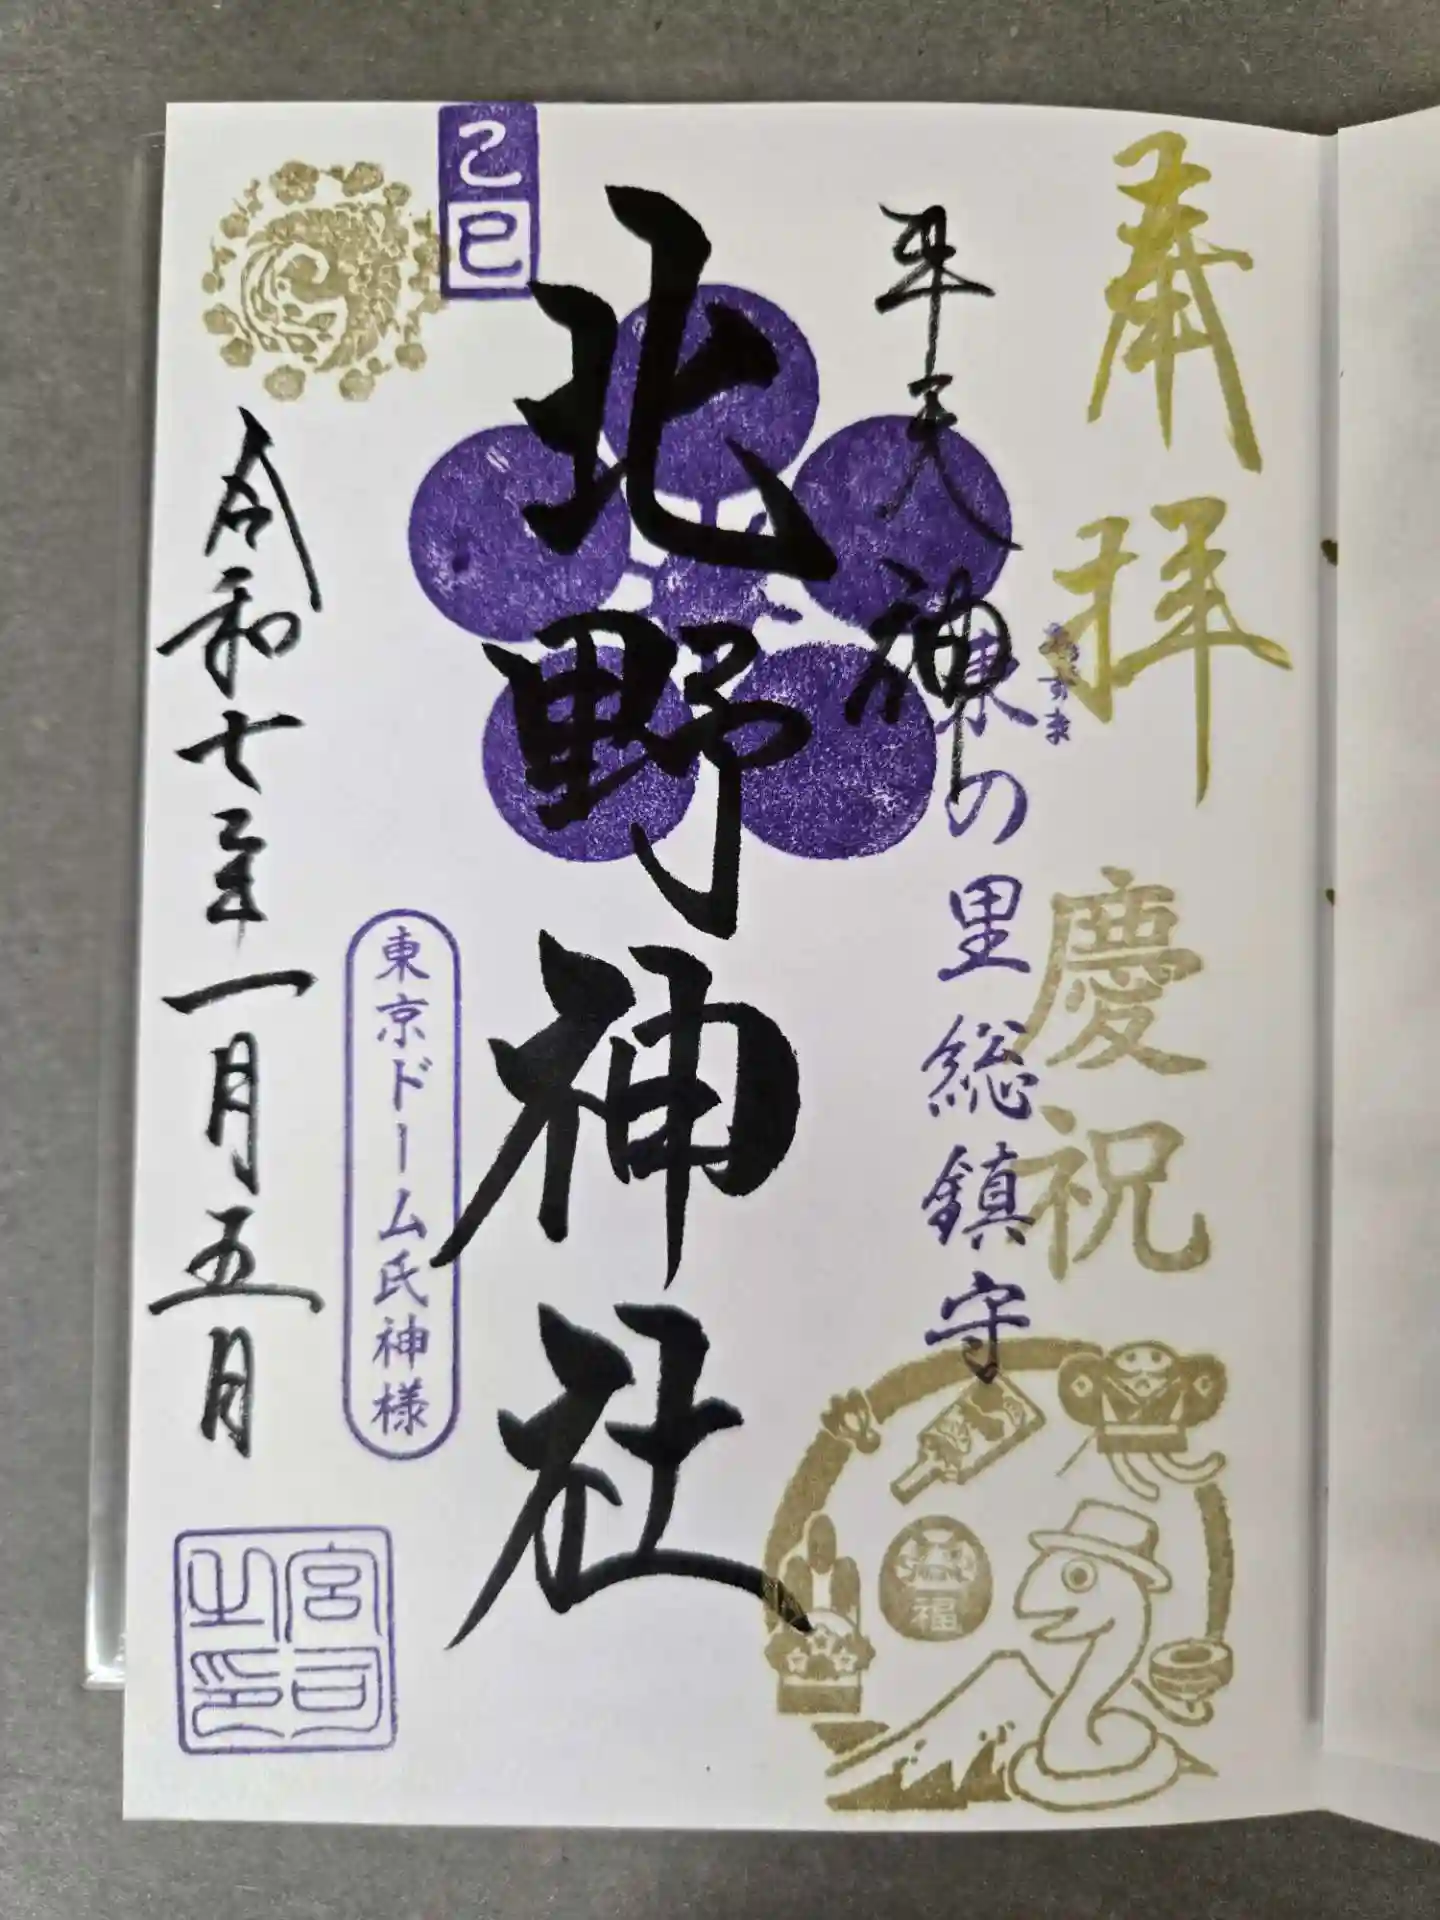 奉拝
慶祝
あずま
東の里総鎮守
牛天神
福
北野神社
乙巳
東京ドーム氏神様
令和七年一月五日
宮司之印